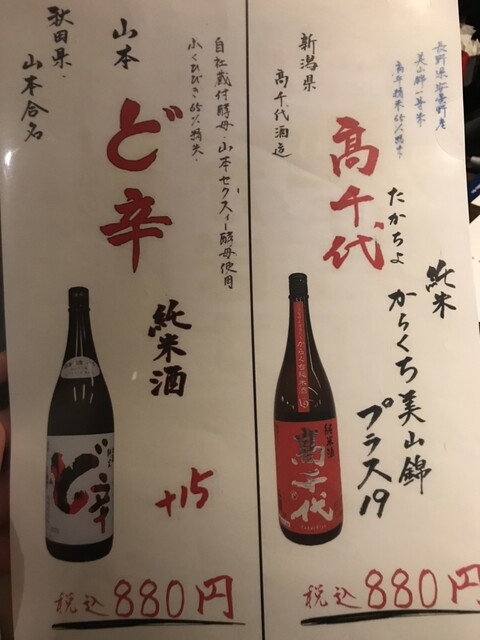 長野県安曇野産
美山錦一等米
高千精米65%精米
純米
たかちよ からくち美山錦
プラス19
高千代
新潟県
高千代酒造
からくち純米酒
19
純米酒
高千代
税込880円
自社蔵付酵母・山本セクスィー酵母使用
ふくひびき65%精米
ど辛
純米酒
+15
山本
秋田県・
山本合名
ど辛
税込880円